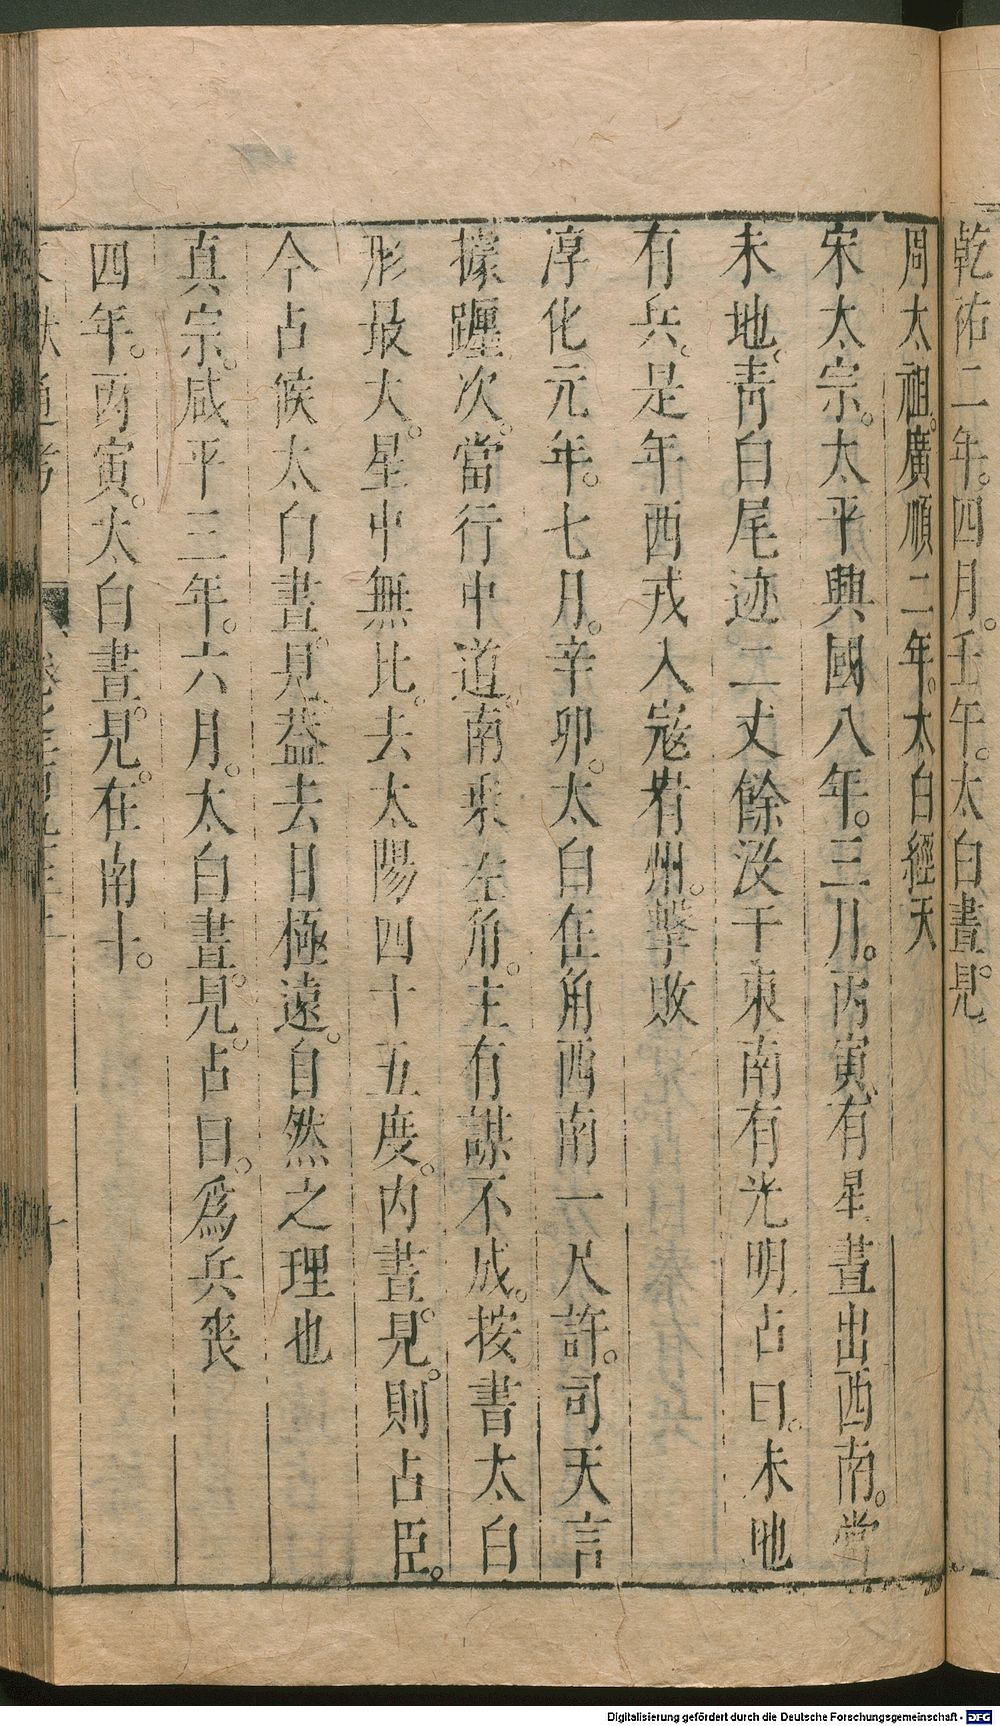 乾祐二年。四月。壬午。太白晝見。
周太祖。廣順二年。太白經天
宋太宗。太平興國八年。三月。丙寅有星晝出西南。當
未地。青白尾迹二丈餘沒于東南有光明占曰。未地
有兵。是年西戎入寇宥州。擊敗
淳化元年。七月。辛卯。太白在角西南一尺許。司天言
據躔次。當行中道。南乘左角。主有謀不成。按書太白
形最大。星中無比。去太陽四十五度。內晝。見。則占臣。
今占候太白晝。見益去日極遠。自然之理也
真宗。咸平三年。六月。太白晝。見。占曰。為兵喪
四年。丙寅。太白晝。見。在南斗。
文獻通考